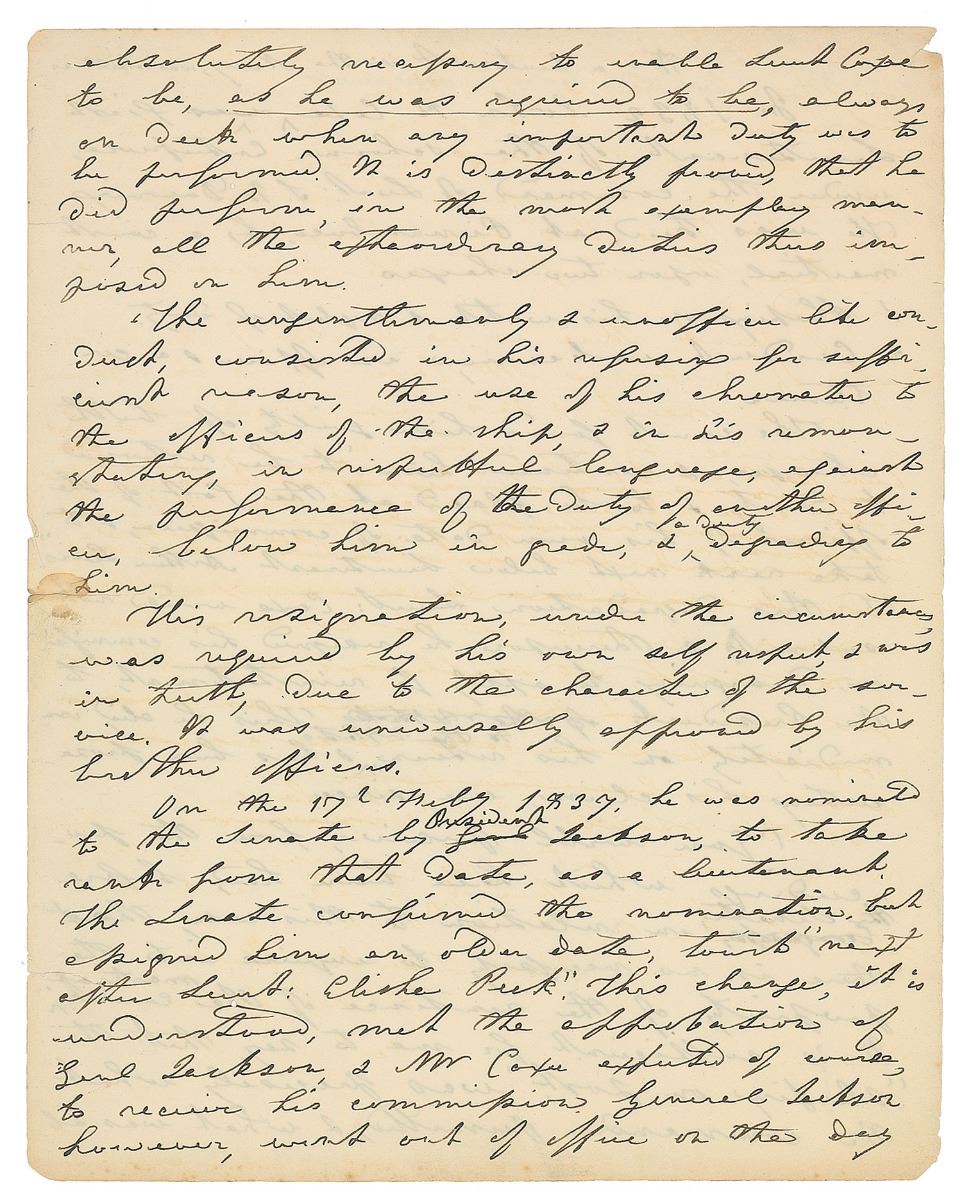 absolutely necessary to enable Lieut Coxe
to be, as he was required to be, always
on deck when any important duty was to
be performed. It is distinctly proved, that he
did perform, in the most exemplary man-
ner, all the extraordinary duties thus im-
posed on him.
The ungentlemanly & unofficer like con-
duct, consisted in his refusing for suffi-
cient reason, the use of his chronometer to
the officers of the ship, & in his remon-
strating, in respectful language, against
the performance of the duty of another offi-
cer, below him in grade, & a duty degrading to
him.
His resignation, under the circumstances,
was required by his own self respect, & was
in truth, due to the character of the ser-
vice. It was universally approved by his
brother officers.
On the 17th Feby 1837, he was nominated
to the Senate by Genl President Jackson, to take
rank from that date, as a lieutenant.
The Senate confirmed the nomination, but
assigned him an older date, to wit "next
after Lieut: Elisha Peck". This change, it is
understood, met the approbation of
Genl Jackson, & Mr Coxe expected of course,
to receive his commission. General Jackson
however, went out of office on the day